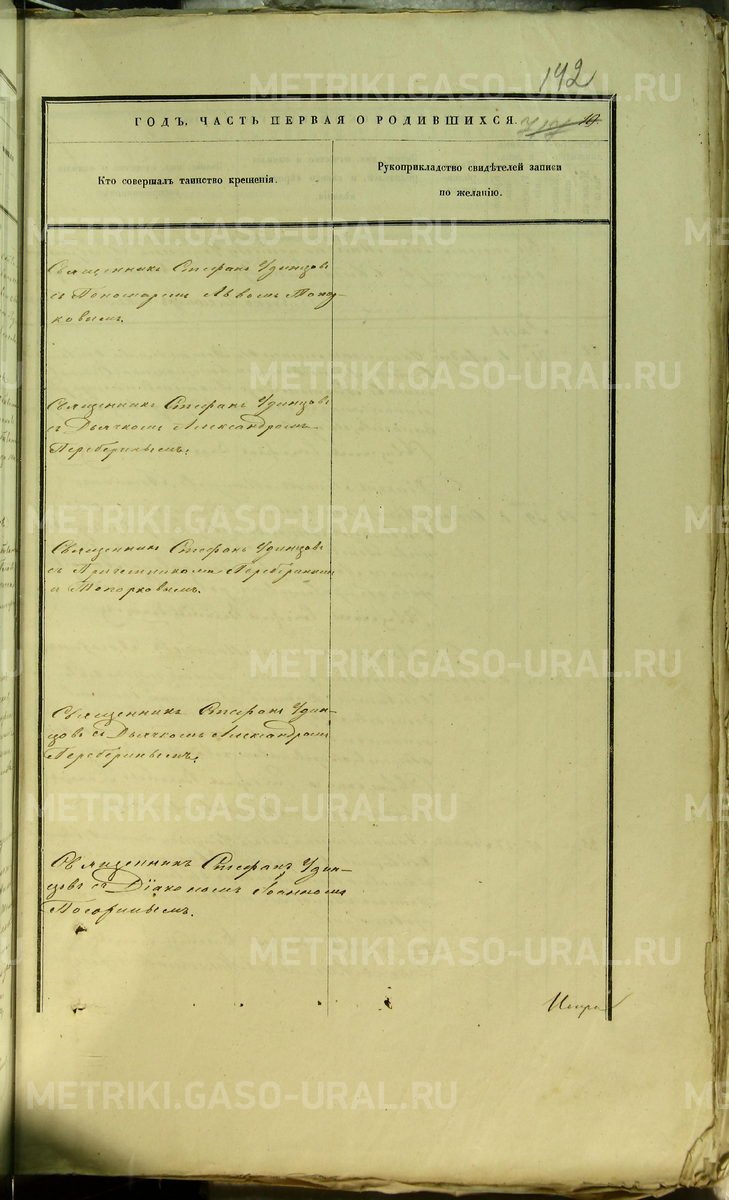 192
ГОДЪ, ЧАСТЬ ПЕРВАЯ О РОДИВШИХСЯ.
Кто совершалъ таинство крещенія.
Рукоприкладство свидѣтелей записи
по желанію.
Священникъ Стефанъ Удинцовъ
съ Пономаремъ Львомъ Топор-
ковымъ.
Священникъ Стефанъ Удинцовъ
съ Дьячкомъ Александромъ
Переберинымъ.
Священникъ Стефанъ Удинцовъ
съ Причетниками Переберинымъ
и Топорковымъ.
Священникъ Стефанъ Удин-
цовъ съ Дьячкомъ Александромъ
Переберинымъ.
Священникъ Стефанъ Удин-
цовъ съ Діакономъ Іоанномъ
METRIKI.GASO-URAL.RU